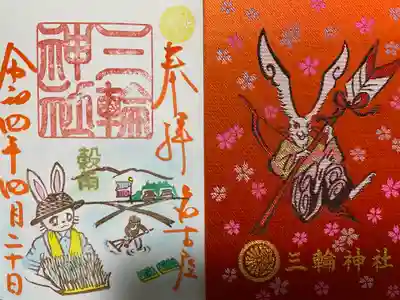 奉拝
三輪
神社
穀雨
名古屋
令和四年四月二十日
三輪神社